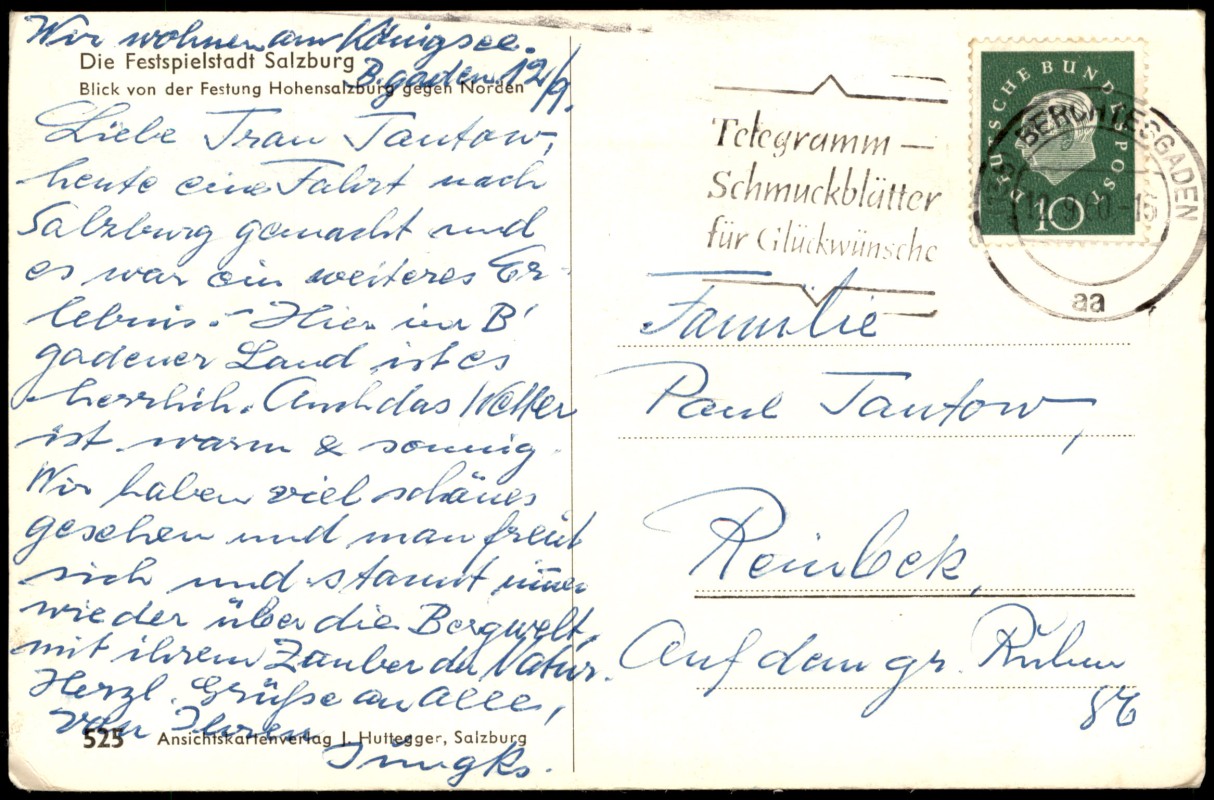 Wir wohnen am Königsee.
Die Festspielstadt Salzburg
B.gaden 12/9.
Blick von der Festung Hohensalzburg gegen Norden
Liebe Frau Tantow,
heute eine Fahrt nach
Salzburg gemacht und
es war ein weiteres Er-
lebnis. - Hier im B'
gadener Land ist es
herrlich. Auch das Wetter
ist warm & sonnig.
Wir haben viel schönes
gesehen und man freut
sich und staunt immer
wieder über die Bergwelt,
mit ihrem Zauber der Natur.
Herzl. Grüße an Alle,
von Ihren
Jungks.
525 Ansichtskartenverlag J. Huttegger, Salzburg
Telegramm —
Schmuckblätter
für Glückwünsche
DEUTSCHE BUNDESPOST
10
BERCHTESGADEN
aa
Familie
Paul Tantow,
Reinbek,
Auf dem gr. Ruhm
86